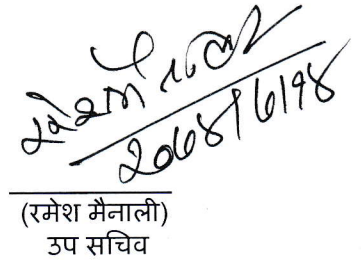 २०७४।७।१४
(रमेश मैनाली)
उप सचिव